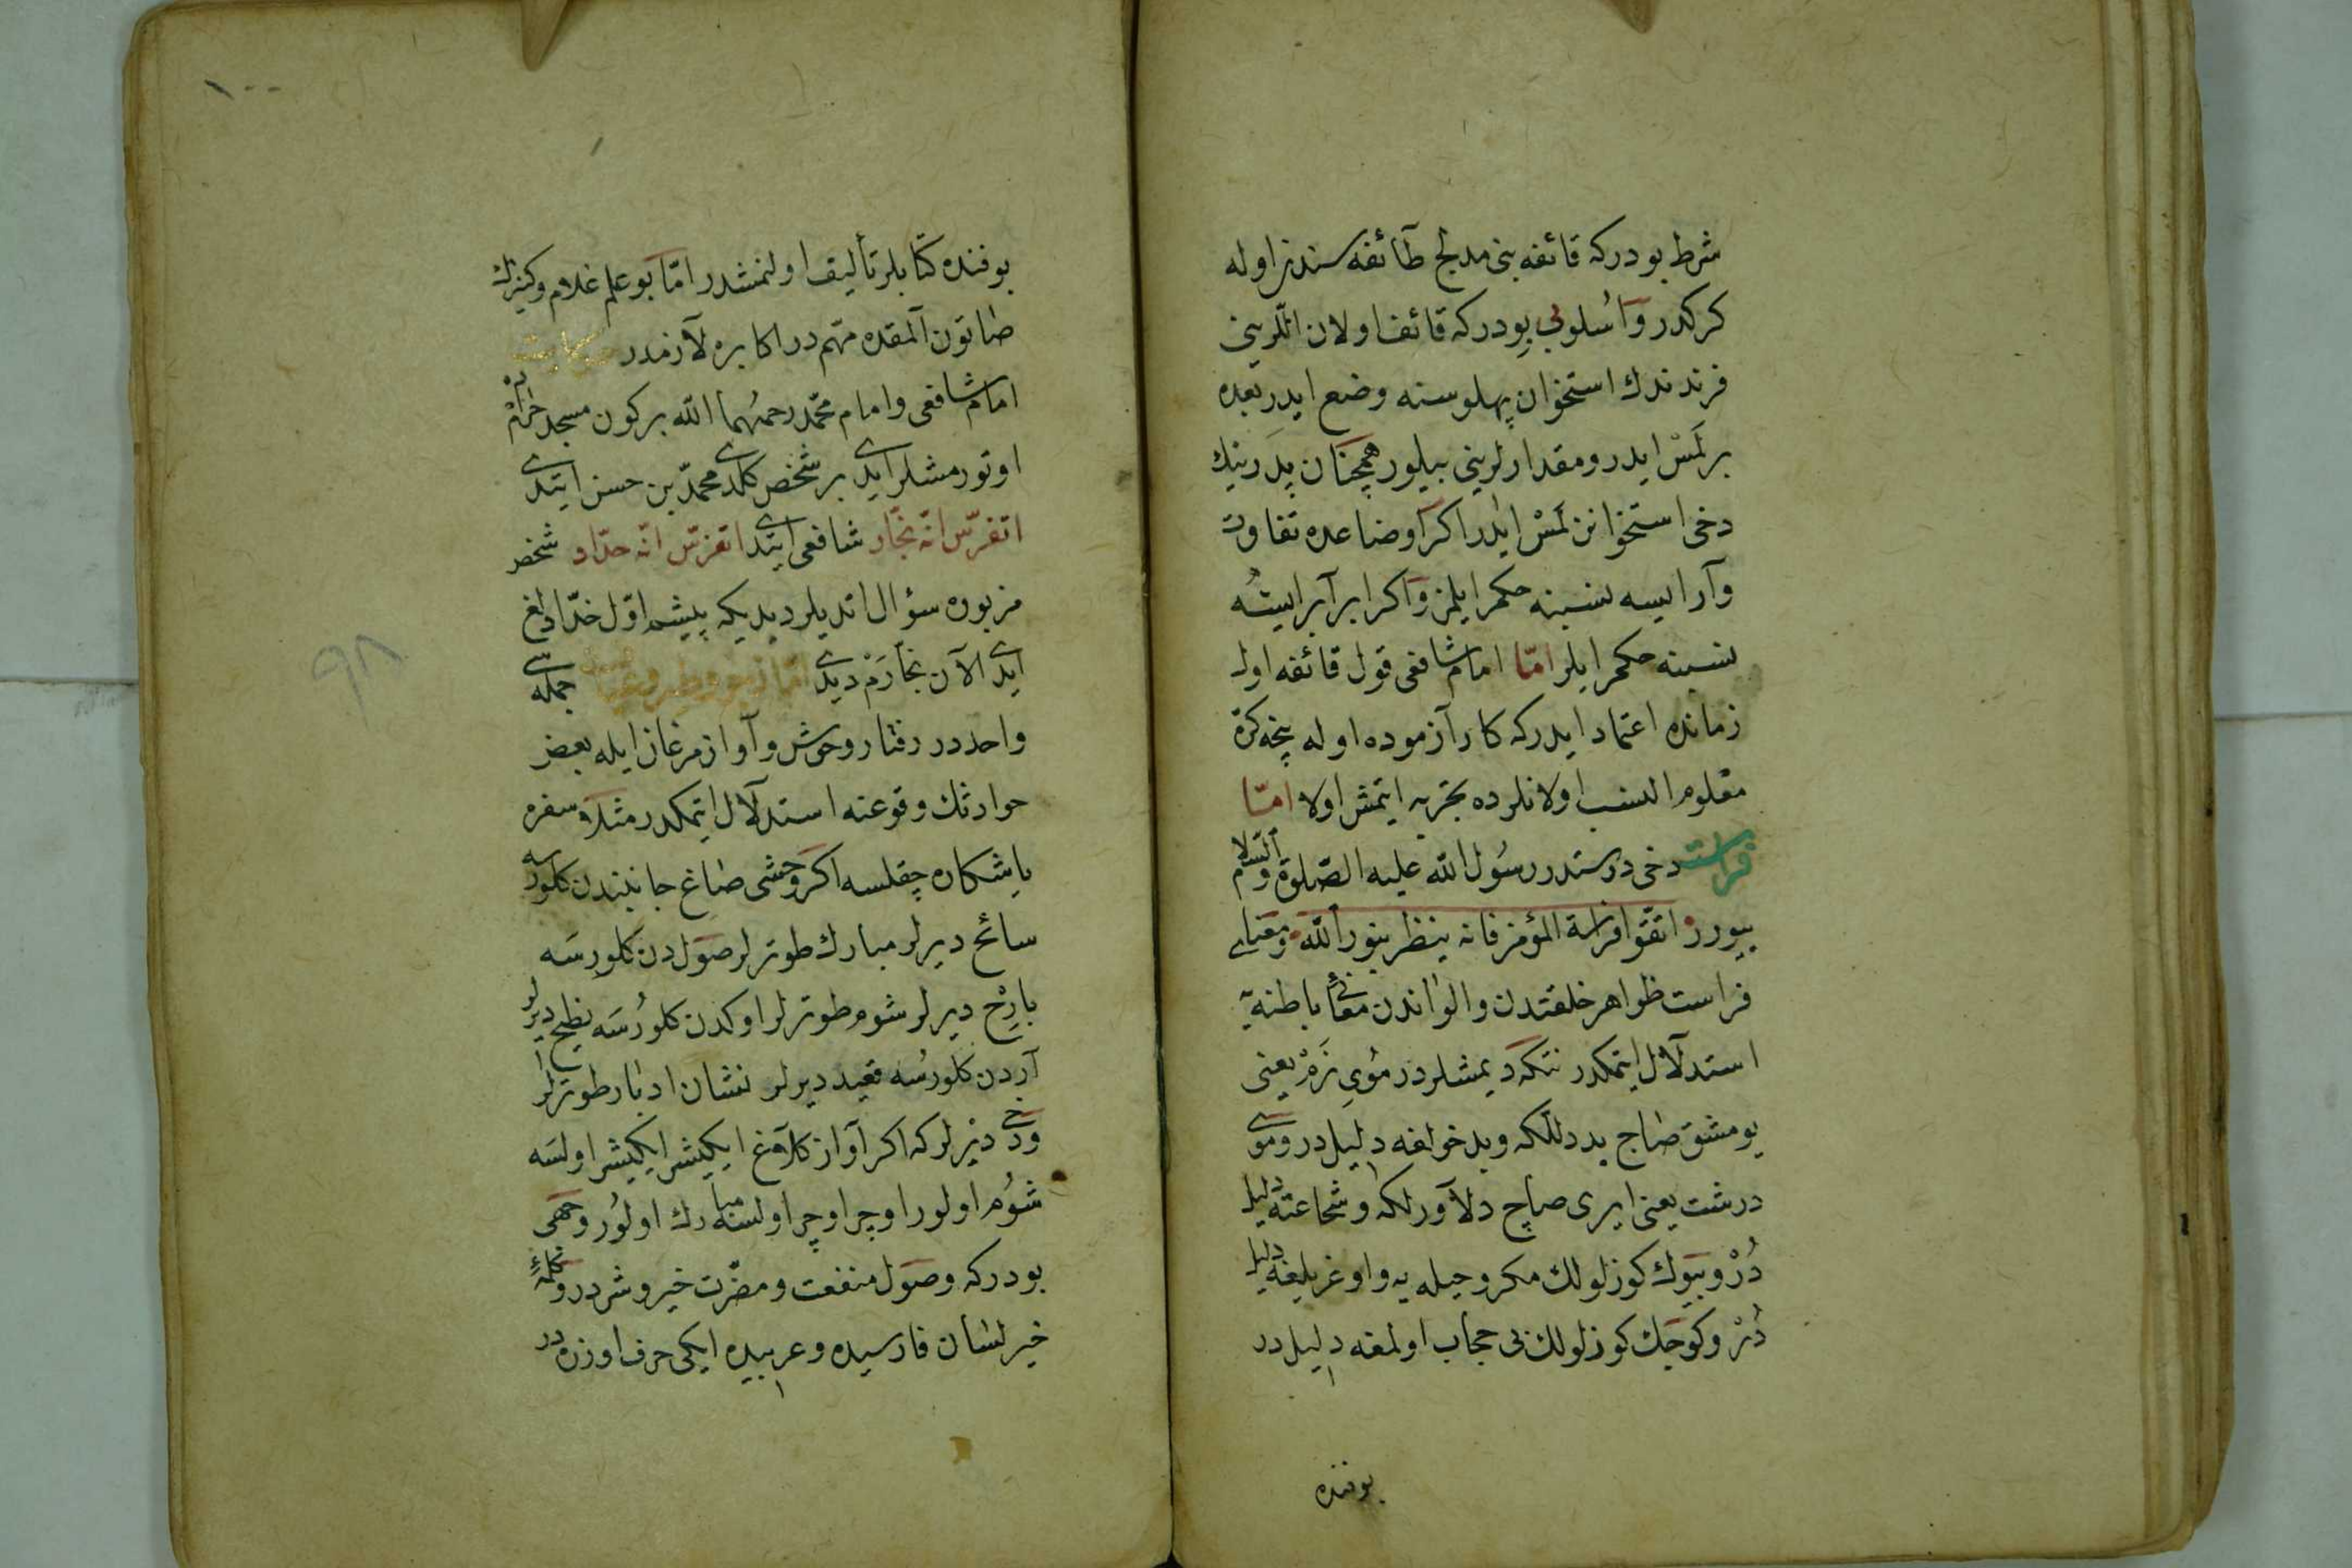 شرط بودركه قائفه بنی مدلج طآئفه سندن اوله
كركدر و اُسلوبی بودركه قائف اولان اللرینی
فرزندك استخوان پهلوسنه وضع ایدر بعده
بر لَمَسْ ایدر و مقدارلرینی بیلور همچنان پدرینك
دخی استخوانن لَمْسْ ایلر اكر اوضاعده تفاوت
وآر ایسه نسبنه حكم ایلمز و اكر برآبر ایسَه
نسبنه حكم ایلر امّا امام شافعی قول قائفه اول
زمانده اعتماد ایدركه كار آزموده اوله نیجه كرّه
معلوم النسب اولانلرده تجربه ایتمش اولا امّا
فراست دخی درستدر رسُول الله علیه الصّلوة والسّلام
بیورر اتّقوا فراسة المؤمن فانه ینظر بنور الله و معنای
فراست ظواهر خلقتدن والواندن معانئ باطنه یه
استدلآل ایتمكدر نتكه دیمشلردر مُویِ نَرْمْ یعنی
یومشق صاج بددللكه و بدخولغه دلیلدر و موی
درشت یعنی ایری صاچ دلآورلكه و شجاعته دلیل
دُرْ و بیوك كوزلولك مكر و حیله یه و اوغریلیغه دلیل
دُرْ و كوچك كوزلولك بی حجاب اولمغه دلیلدر
بوفنده
١٠٠
بوفنده كتابلر تألیف اولنمشدر امّا بو علم غلام و كنیزك
صاتون آلمقده مهّم در اكابره لآزمدر حكایت
امام شافعی و امام محمّد رحمهُما الله بر كون مسجد حرامْده
اوتورمشلر ایدی بر شخص كلدی محمّد بن حسن ایتدی
اتفرّس انّه نجّار شافعی ایتدی اتفرّس انّه حدّاد شخص
مزبوره سؤال اتدیلر دیدیكه پیشه اوّل حدّادلغ
ایدی الآن نجّارَمْ دیدی جمله سی
واحددر رفتار وحوش و آواز مرغان ایله بعض
حوادثك وقوعنه استدلآل ایتمكدر مثلا سفره
یا شكاره چقلسه اكر وحشی صاغ جانبندن كلورسه
سائح دیرلر مبارك طوترلر صَول دن كلورسَه
بارِحْ دیرلر شوم طوترلر اوكدن كلورُسَه نطیح دیرلر
آردن كلورسُه قعید دیرلر نشان ادبار طوترلر
وَدخی دیرلركه اكر آواز كلاغ ایكیشر ایكیشر اولسَه
شوُم اولور اوچر اوچر اولسه مبارك اولُور و جهی
بودركه وصَول منفعت و مضرّت خیر و شردر و كلمۀ
خیر لسان فارسیده و عربیده ایكی حرف اوزره در
٩٨